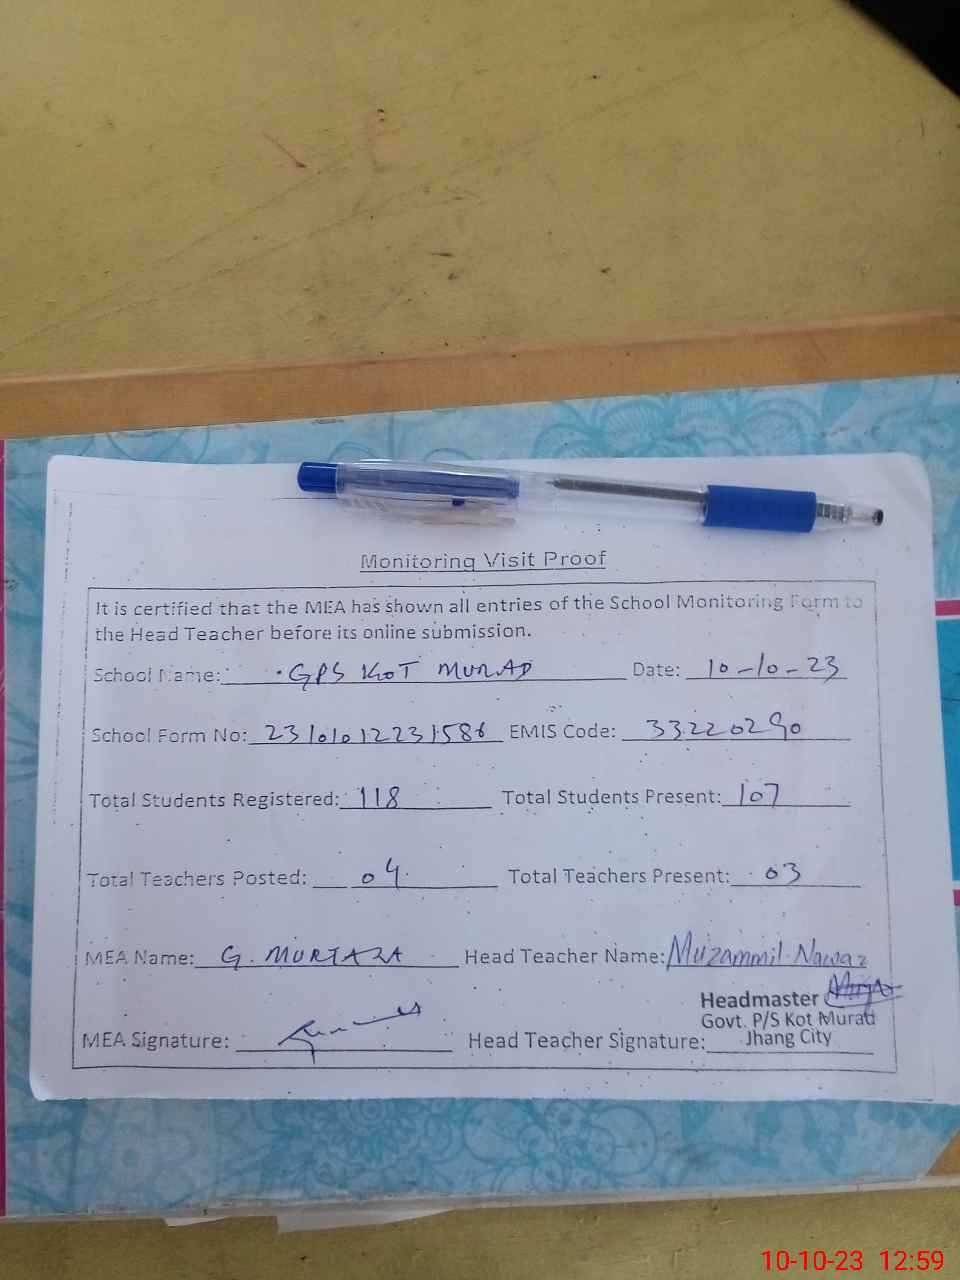 Monitoring Visit Proof
It is certified that the MEA has shown all entries of the School Monitoring Form to
the Head Teacher before its online submission.
School Name: GPS KOT MURAD Date: 10-10-23
School Form No: 23101012231586 EMIS Code: 33220290
Total Students Registered: 118 Total Students Present: 107
Total Teachers Posted: 04 Total Teachers Present: 03
MEA Name: G. MURTAZA Head Teacher Name: Muzammil Nawaz
Headmaster
Govt. P/S Kot Murad
MEA Signature: Head Teacher Signature: Jhang City
10-10-23 12:59